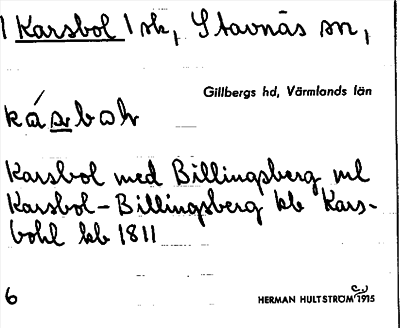 Karsbol sk, Stavnäs sn,
Gillbergs hd, Värmlands län
Karsbol med Billingsberg ml
Karsbol-Billingsberg kb Kars-
bohl kb 1811
6 HERMAN HULTSTRÖM 1915